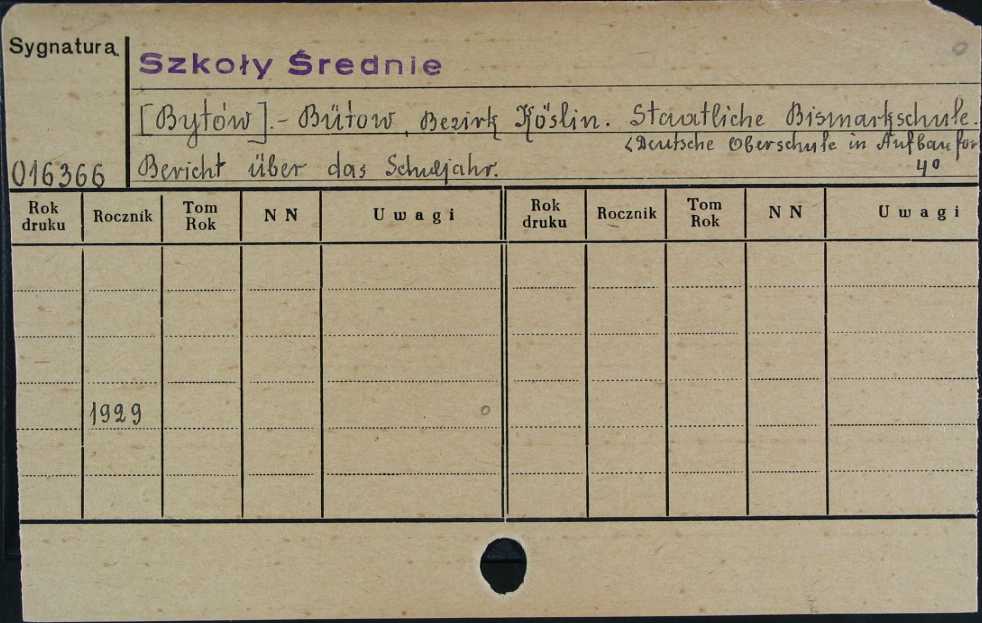 Sygnatura
Szkoły Średnie
[Bytów].- Bütow, Bezirk Köslin. Staatliche Bismarkschule.
<Deutsche Oberschule in Aufbaufor
016366 Bericht über das Schuljahr. 4º
Rok druku Rocznik Tom Rok N N Uwagi Rok druku Rocznik Tom Rok N N Uwagi
1929